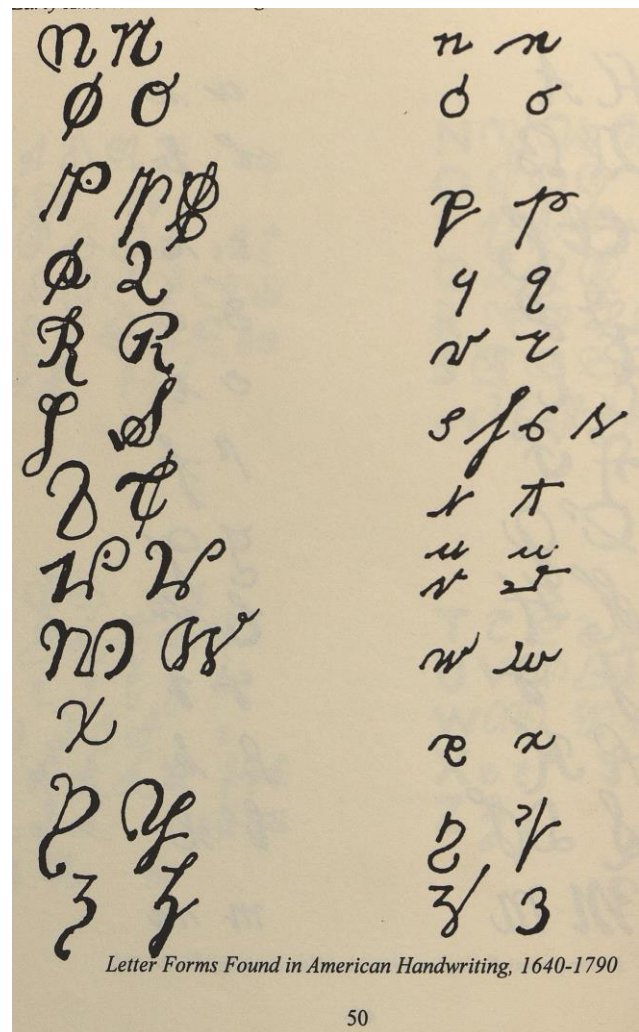 n n n n
O O o o
P P P p p
Q Q q q
R R r r
S S s s s s
T T t t
u u
V V v v
W W w w
X x x
Y Y y y
Z Z z z
Letter Forms Found in American Handwriting, 1640-1790
50